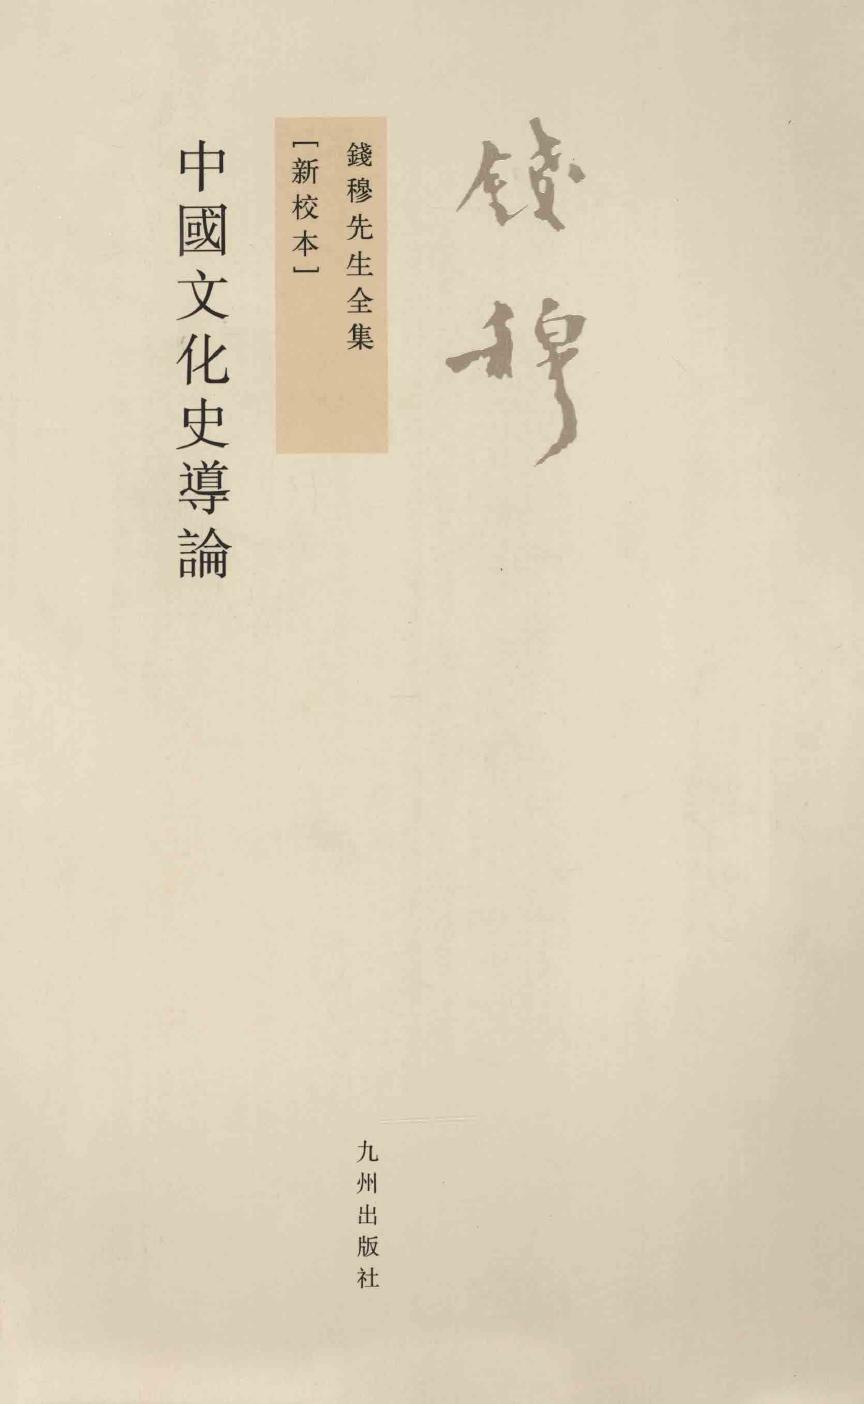 錢穆
錢穆先生全集
［新校本］
中國文化史導論
九州出版社